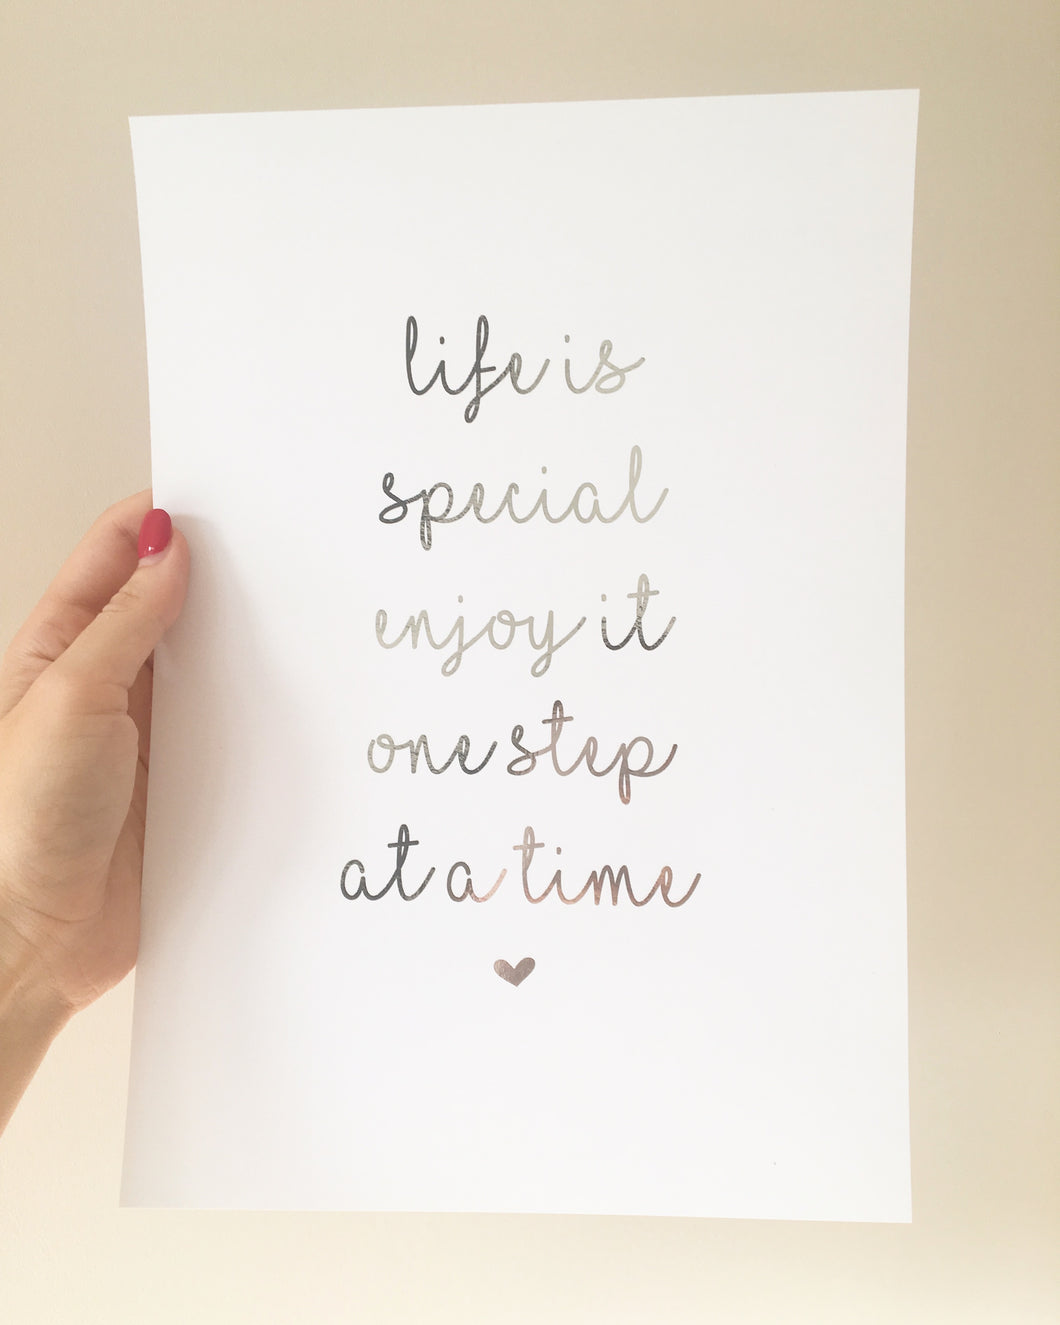 life is
special
enjoy it
one step
at a time